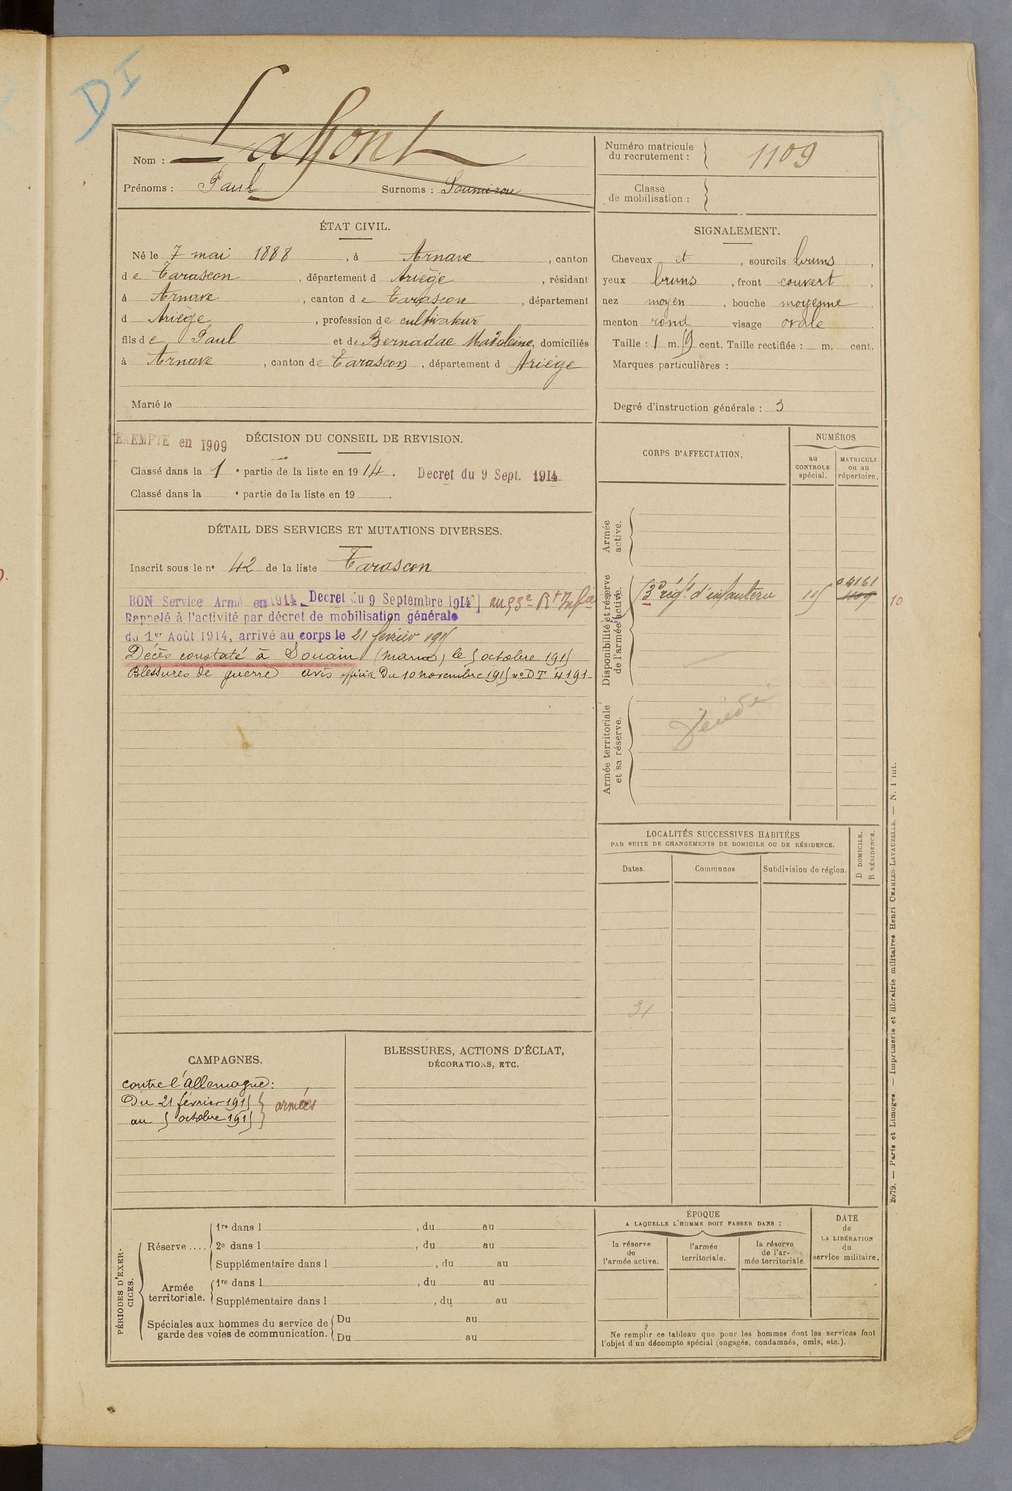 DI
Nom : Lafont
Prénoms : Paul Surnoms : Soumirou
Numéro matricule
du recrutement : 1109
Classe
de mobilisation :
ÉTAT CIVIL.
Né le 7 mai 1888, à Arnave, canton
de Tarascon, département d Ariège, résidant
à Arnave, canton de Tarascon, département
d Ariège, profession de cultivateur
fils de Paul et de Bernadac Madeleine, domiciliés
à Arnave, canton de Tarascon, département d Ariège
Marié le
SIGNALEMENT.
Cheveux et, sourcils bruns,
yeux bruns, front couvert,
nez moyen, bouche moyenne
menton rond visage ovale
Taille : 1 m. cent. Taille rectifiée : m. cent.
Marques particulières :
Degré d'instruction générale : 3
EXEMPTÉ en 1909
DÉCISION DU CONSEIL DE REVISION.
Classé dans la 1e partie de la liste en 1914. Decret du 9 Sept. 1914
Classé dans la e partie de la liste en 19
DÉTAIL DES SERVICES ET MUTATIONS DIVERSES.
Inscrit sous le n° 42 de la liste Tarascon
BON Service Armé en 1914 Decret du 9 Septembre 1914
Rappelé à l'activité par décret de mobilisation générale
du 1er Août 1914, arrivé au corps le 21 février 1915
Décès constaté à Souain (Marne) le 5 octobre 1915
Blessures de guerre avis officiel du 10 novembre 1915 n° DT 4191
CORPS D'AFFECTATION.
NUMÉROS
au
CONTROLE
spécial.
MATRICULE
ou au
répertoire.
Armée
active.
Disponibilité et réserve
de l'armée active.
53e rég.t d'infanterie 115 04161
1109
10
Armée territoriale
et sa réserve.
Décédé
LOCALITÉS SUCCESSIVES HABITÉES
PAR SUITE DE CHANGEMENTS DE DOMICILE OU DE RÉSIDENCE.
Dates. Communes Subdivision de région.
D DOMICILE.
R RÉSIDENCE.
31
CAMPAGNES.
contre l'Allemagne :
Du 21 février 1915
au 5 octobre 1915 } armées
BLESSURES, ACTIONS D'ÉCLAT,
DÉCORATIONS, ETC.
PÉRIODES D'EXER-
CICES.
Réserve....
1re dans l , du au
2e dans l , du au
Supplémentaire dans l , du au
Armée
territoriale.
1re dans l , du au
Supplémentaire dans l , du au
Spéciales aux hommes du service de
garde des voies de communication.
Du au
Du au
ÉPOQUE
A LAQUELLE L'HOMME DOIT PASSER DANS :
la réserve
de
l'armée active.
l'armée
territoriale.
la réserve
de l'ar-
mée territoriale.
DATE
de
LA LIBÉRATION
du
service militaire.
Ne remplir ce tableau que pour les hommes dont les services font
l'objet d'un décompte spécial (engagés, condamnés, omis, etc.).
2079. — Paris et Limoges. — Imprimerie et librairie militaires Henri CHARLES-LAVAUZELLE. — N. 1 int.